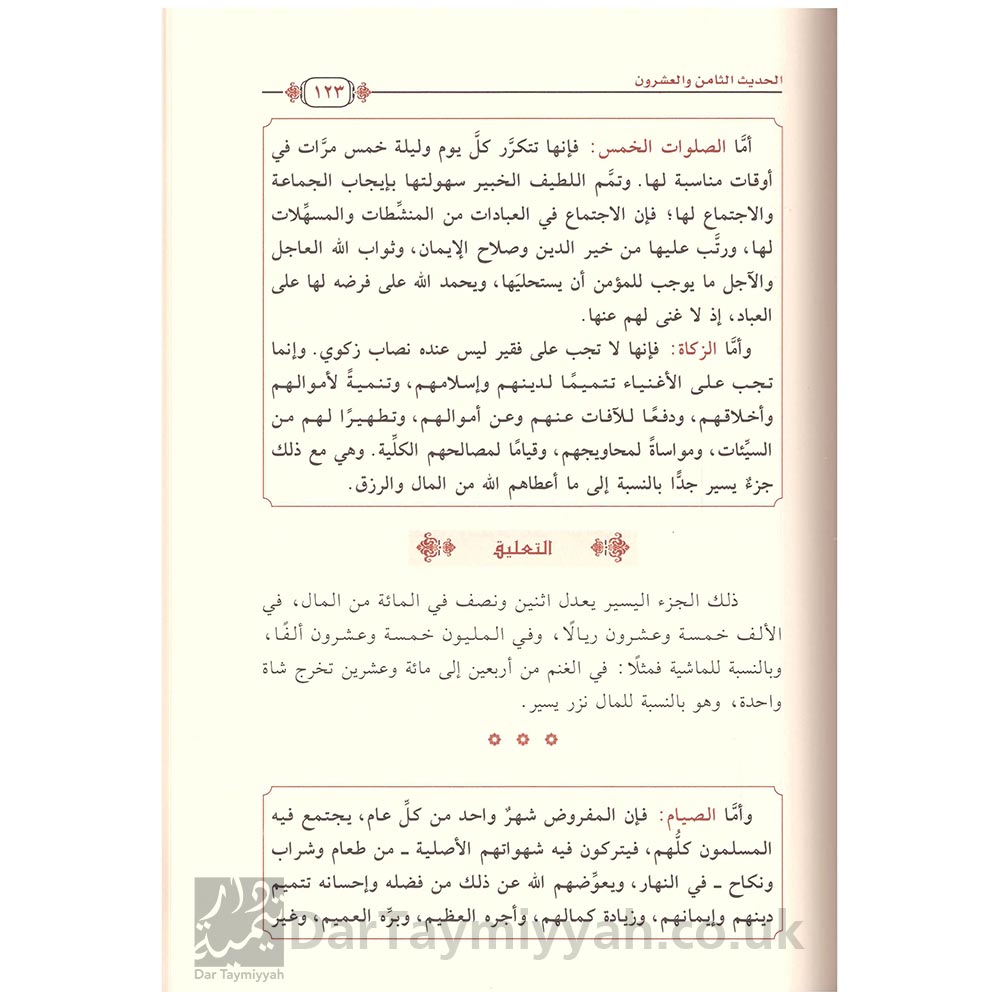 الحديث الثامن والعشرون
١٢٣
أمَّا الصلوات الخمس: فإنها تتكرَّر كلَّ يوم وليلة خمس مرَّات في
أوقات مناسبة لها. وتمَّم اللطيف الخبير سهولتها بإيجاب الجماعة
والاجتماع لها؛ فإن الاجتماع في العبادات من المنشِّطات والمسهِّلات
لها، ورتَّب عليها من خير الدين وصلاح الإيمان، وثواب الله العاجل
والآجل ما يوجب للمؤمن أن يستحليَها، ويحمد الله على فرضه لها على
العباد، إذ لا غنى لهم عنها.
وأمَّا الزكاة: فإنها لا تجب على فقير ليس عنده نصاب زكوي. وإنما
تجب على الأغنياء تتميمًا لدينهم وإسلامهم، وتنميةً لأموالهم
وأخلاقهم، ودفعًا للآفات عنهم وعن أموالهم، وتطهيرًا لهم من
السيِّئات، ومواساةً لمحاويجهم، وقيامًا لمصالحهم الكلِّية. وهي مع ذلك
جزءٌ يسير جدًّا بالنسبة إلى ما أعطاهم الله من المال والرزق.
التعليق
ذلك الجزء اليسير يعدل اثنين ونصف في المائة من المال، في
الألف خمسة وعشرون ريالًا، وفي المليون خمسة وعشرون ألفًا،
وبالنسبة للماشية فمثلًا: في الغنم من أربعين إلى مائة وعشرين تخرج شاة
واحدة، وهو بالنسبة للمال نزر يسير.
وأمَّا الصيام: فإن المفروض شهرٌ واحد من كلِّ عام، يجتمع فيه
المسلمون كلُّهم، فيتركون فيه شهواتهم الأصلية ـ من طعام وشراب
ونكاح ـ في النهار، ويعوِّضهم الله عن ذلك من فضله وإحسانه تتميم
دينهم وإيمانهم، وزيادة كمالهم، وأجره العظيم، وبرِّه العميم، وغير
دار تيمية
Dar Taymiyyah
DarTaymiyyah.co.uk